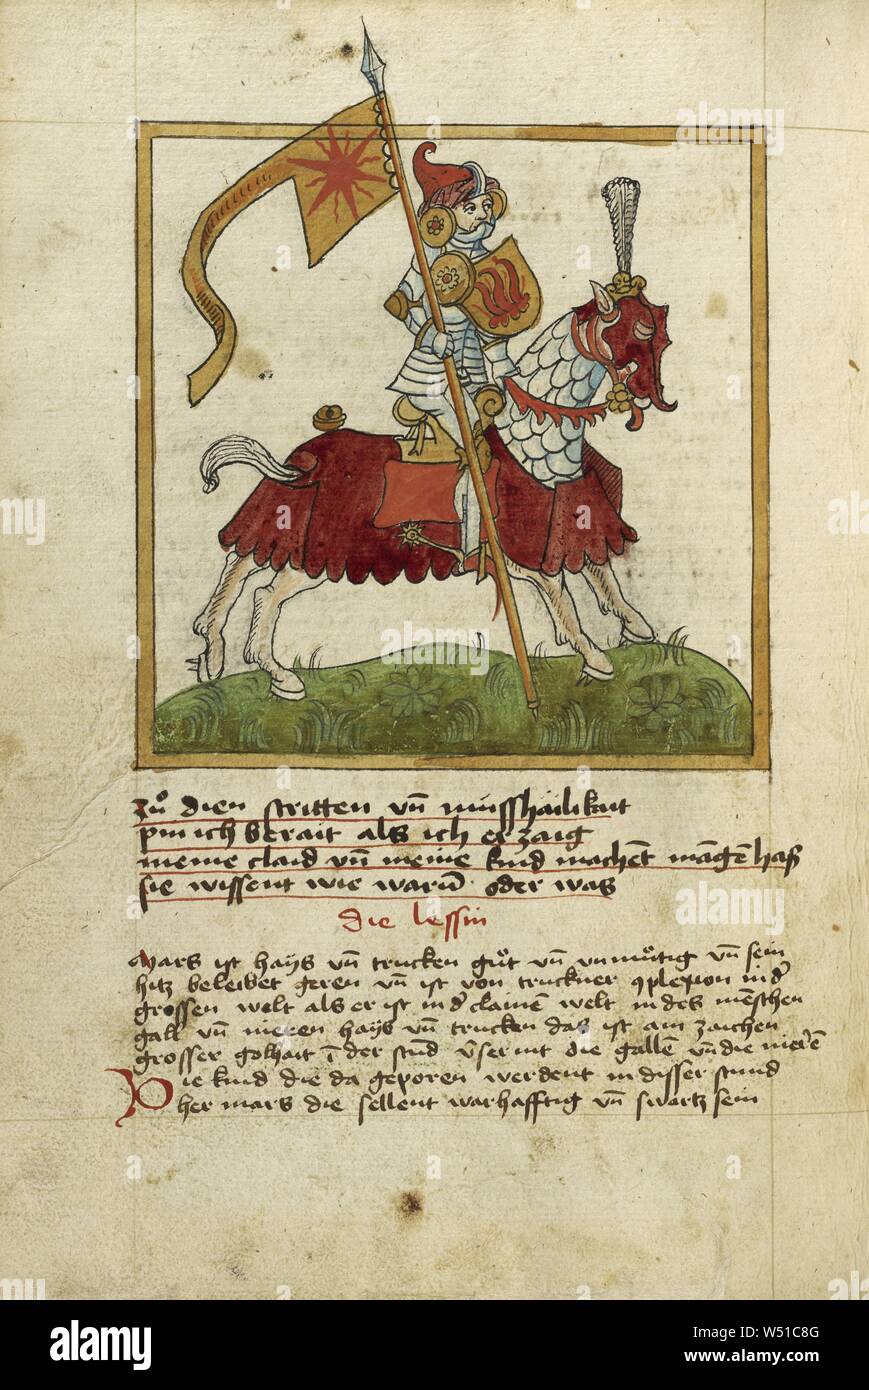 zů dien stritten vn̄ misshälikait
pin ich berait als ich erzaig
meine claid vn̄ meine kind machent mangē hass
sie wissent wie warum̄ oder was
die lessin
Mars ist hays vn̄ trucken vn̄ vnmůtig vn̄ sein
hitz beleibet geren vn̄ ist von truckner 9plexion in dʼ
grossen welt als er ist in dʼ clainē welt in des menschen
gall vn̄ nieren hays vn̄ trucken das ist am zaichen
grosser der stund die gallē vn̄ die nierē
Die kind die da geporen werdent in disser stund
her mars die sellent warhafftig vn̄ swartz sein
alamy
Image ID: W51C8G
www.alamy.com